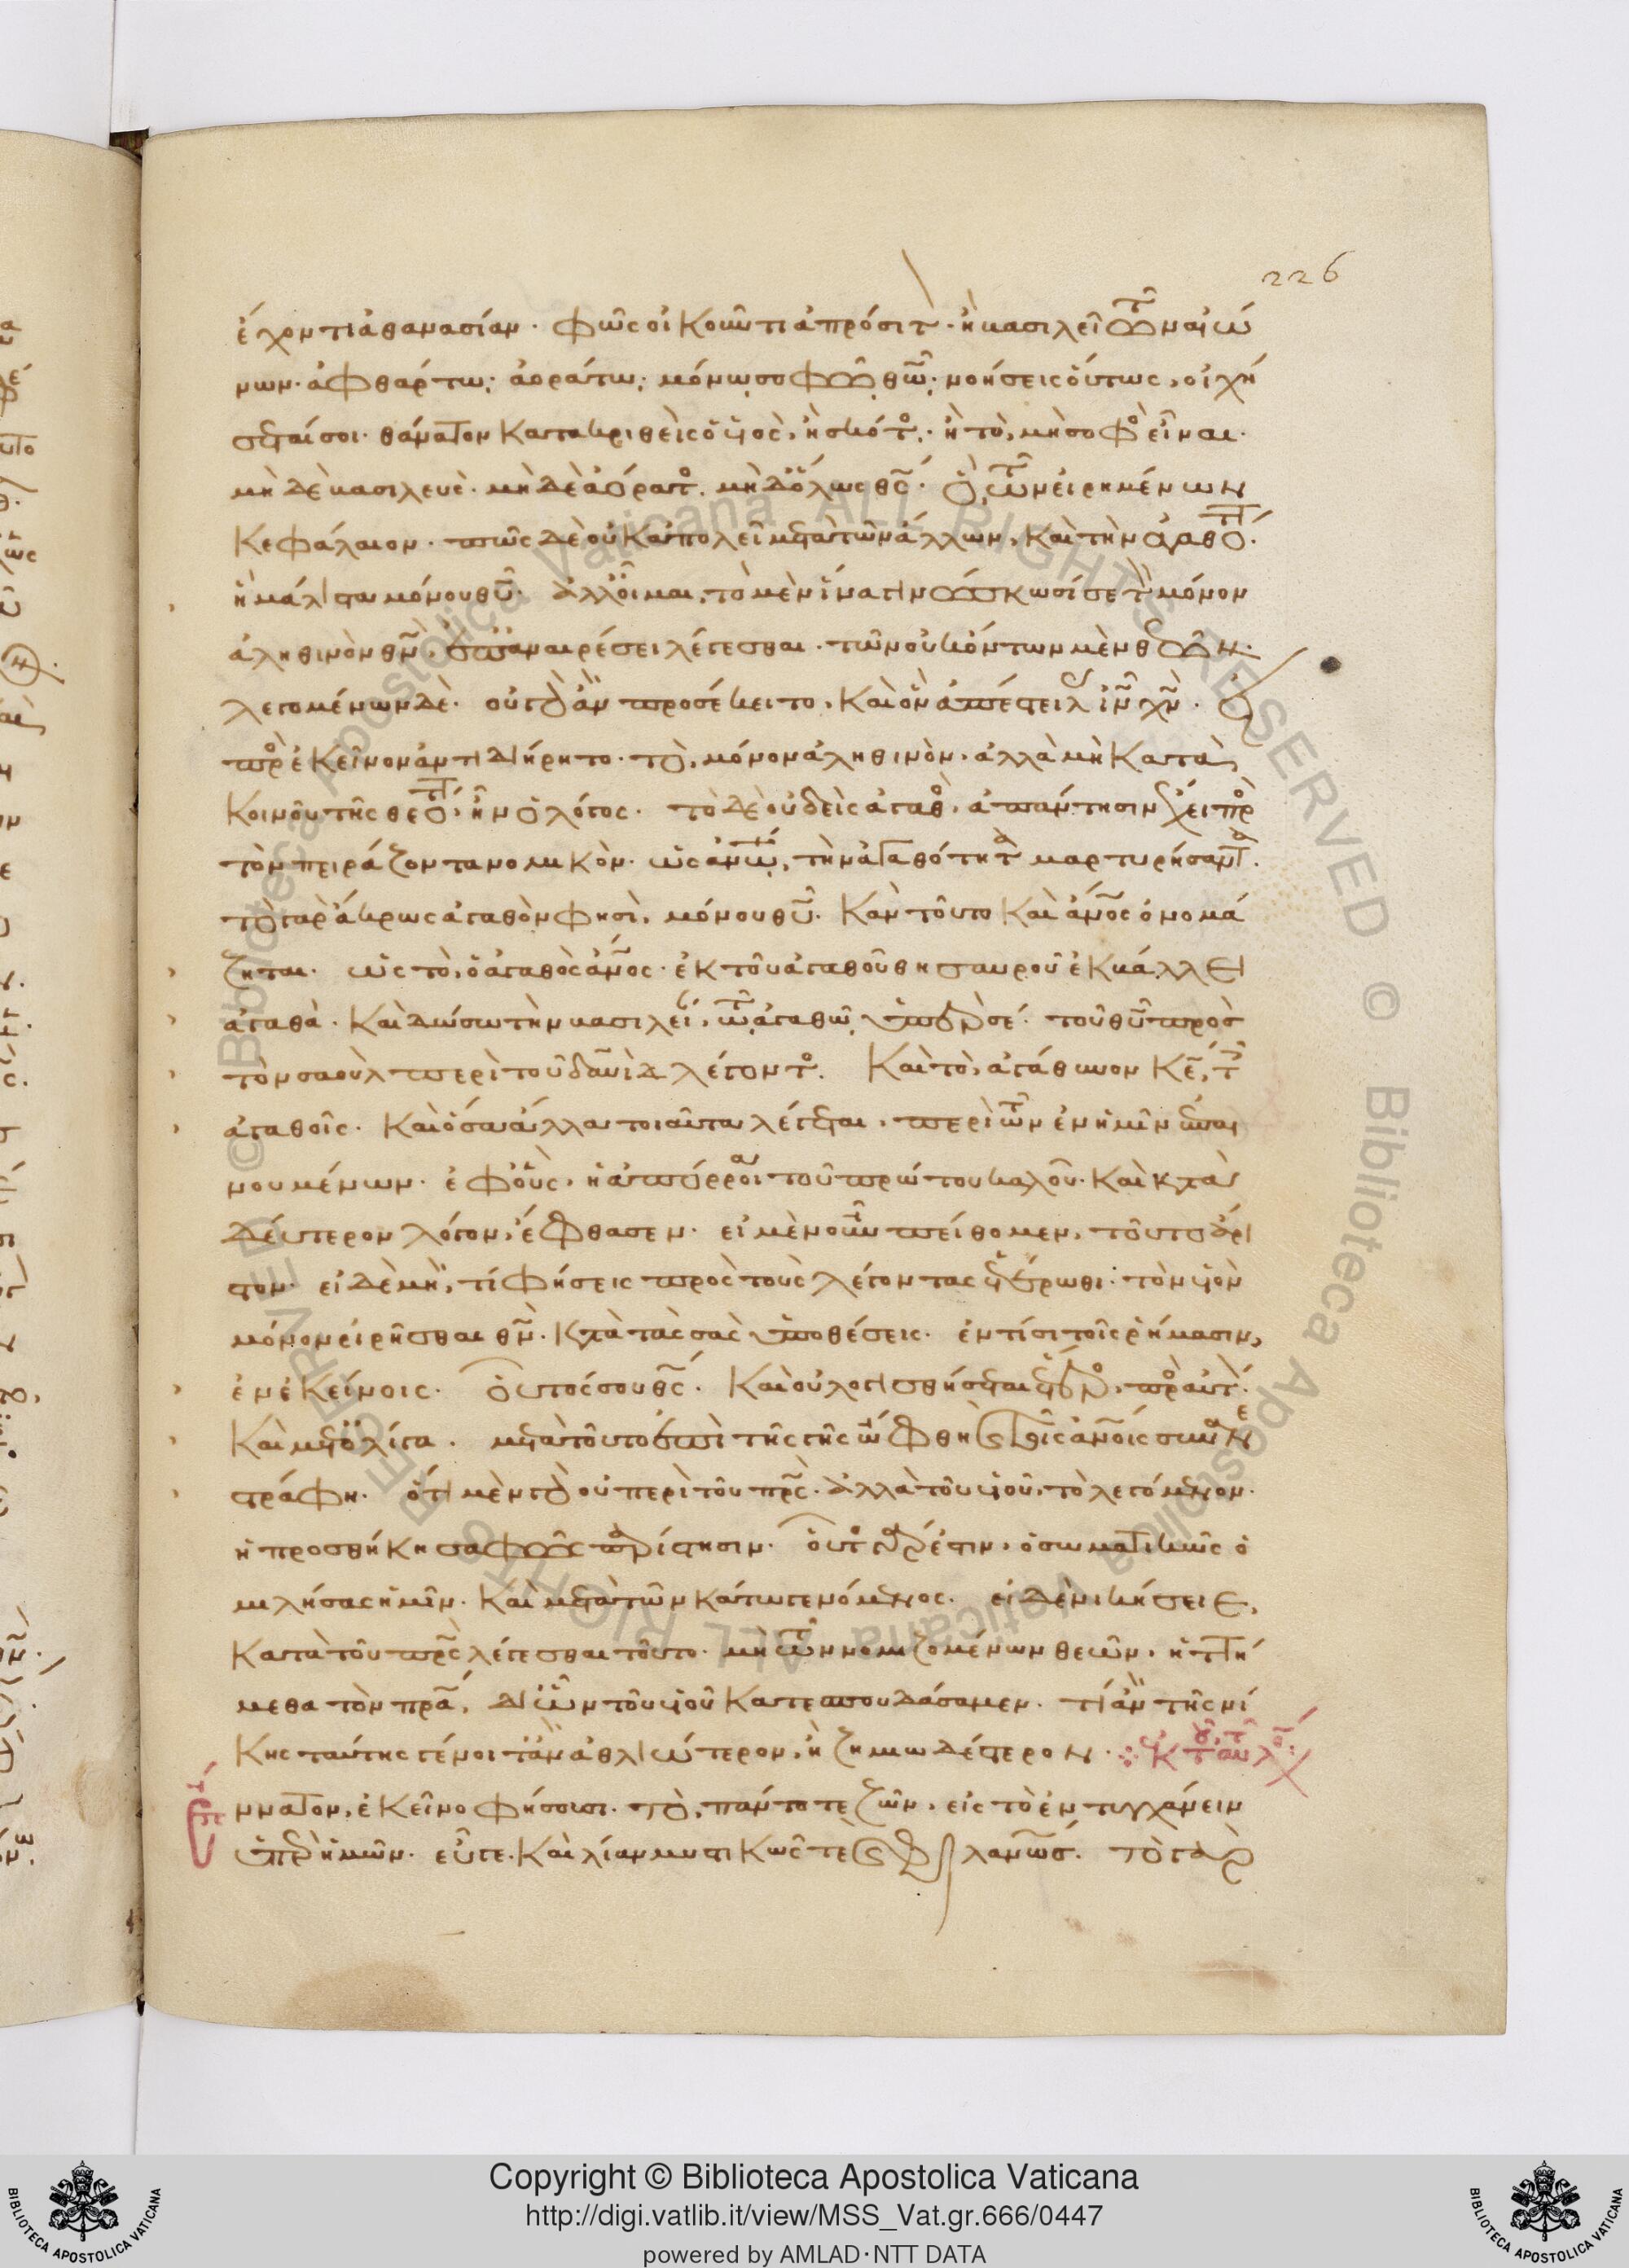 226
ἔχοντι ἀθανασίαν· φῶς οἰκοῦντι ἀπρόσιτ· ἢ βασιλεῖ τῶν αἰώ
νων· ἀφθάρτω· ἀοράτω· μόνω σοφῶ θῶ· νοήσεις οὕτως, οἰχή
σεταί σοι· θάνατον κατακριθεὶς ὁ υἱὸς, ἢ σκότος· ἢ τὸ, μὴ σοφὸς εἶναι·
μὴ δὲ βασιλεὺς· μὴ δὲ ἀόρατος· μὴ δόλως θς· ὃ τῶν εἰρημένων
κεφάλαιον· πῶς δὲ οὐκ ἀπολεῖ μετὰ τῶν ἄλλων, καὶ τὴν ἀγαθότητα·
ἢ μάλιστα μόνου θυ· ἀλλ οἶμαι, τὸ μὲν ἵνα γινώσκωσί σε τὸν μόνον
ἀληθινὸν θν, ἐπ ἀναιρέσει λέγεσθαι· τῶν οὐκ όντων μὲν θεῶν·
λεγομένων δὲ· οὐ γὰρ ἂν προσέκειτο, καὶ ὃν ἀπέστειλας ιν χν· εἰ
πρὸς ἐκεῖνον ἀντιδιήρητο· τὸ, μόνον ἀληθινὸν, ἀλλὰ μὴ κατὰ
κοινοῦ τῆς θεότητος, ἦν ὁ λόγος· τὸ δὲ οὐδεὶς ἀγαθὸς, ἀπάντησιν ἔχει πρὸς
τὸν πειράζοντα νομικὸν· ὡς ανω, τὴν ἀγαθότητα μαρτυρήσαντα·
τὸ γὰρ ἄκρως ἀγαθὸν φησὶ, μόνου θυ· κἂν τοῦτο καὶ ανος ὀνομά
ζηται· ὡς τὸ, ὁ ἀγαθὸς ανος· ἐκ τοῦ ἀγαθοῦ θησαυροῦ ἐκβάλλει
ἀγαθὰ· καὶ δώσω τὴν βασιλεί, τῶ ἀγαθῶ ὑπὲρ σέ· τοῦ θυ πρὸς
τὸν σαοὺλ περὶ τοῦ δαυὶδ λέγοντος· καὶ τὸ, ἀγάθυνον κε, τοῖς
ἀγαθοῖς· καὶ ὅσα ἄλλα τοιαῦτα λέγεται, περὶ τῶν ἐν ἡμῖν ἐπαι
νουμένων· ἐφ οὓς, ἡ ἀπόρροια τοῦ πρώτου καλοῦ· καὶ κατὰ
δεύτερον λόγον, ἔφθασεν· εἰ μὲν οὖν πείθομεν, τοῦτο ἄρι
στον· εἰ δὲ μὴ, τί φήσεις πρὸς τοὺς λέγοντας ἑτέρωθι· τὸν υἱὸν
μόνον εἰρῆσθαι θν· κατὰ τὰς σὰς ὑποθέσεις· ἐν τίσι τοῖς ῥήμασιν,
ἐν ἐκείνοις· οὗτός σου θς· καὶ οὐ λογισθήσεται ἕτερος, πρὸς αὐτ·
καὶ μετ ὀλίγα· μετὰ τοῦτο ἐπὶ τῆς γῆς ὤφθη καὶ τοῖς ανοις συνανε
στράφη· ὅτι μὲν γὰρ οὐ περὶ τοῦ πρς· ἀλλὰ τοῦ υἱοῦ, τὸ λεγόμενον·
ἡ προσθήκη σαφῶς παρίστησιν· οὗτος γάρ ἐστιν, ὁ σωματικῶς ὁ
μιλήσας ἡμῖν· καὶ μετὰ τῶν κάτω γενόμενος· εἰ δὲ νικήσειε,
κατὰ τοῦ πρς λέγεσθαι τοῦτο· μὴ τῶν νομιζομένων θεῶν, ἡττή
μεθα τὸν πρα, δι ὧν τοῦ υἱοῦ κατεσπουδάσαμεν· τί ἂν τῆς νί
κης ταύτης γένοιτ ἂν ἀθλιώτερον, ἢ ζημιωδέστερον·
ννατον, ἐκεῖνο φήσουσι· τὸ, πάντοτε ζῶν, εἰς τὸ ἐντυγχάνειν
ὑπὲρ ἡμῶν· εὖγε· καὶ λίαν μυστικῶς τὲ καὶ φιλανως· τὸ γὰρ
Copyright © Biblioteca Apostolica Vaticana
http://digi.vatlib.it/view/MSS_Vat.gr.666/0447
powered by AMLAD·NTT DATA